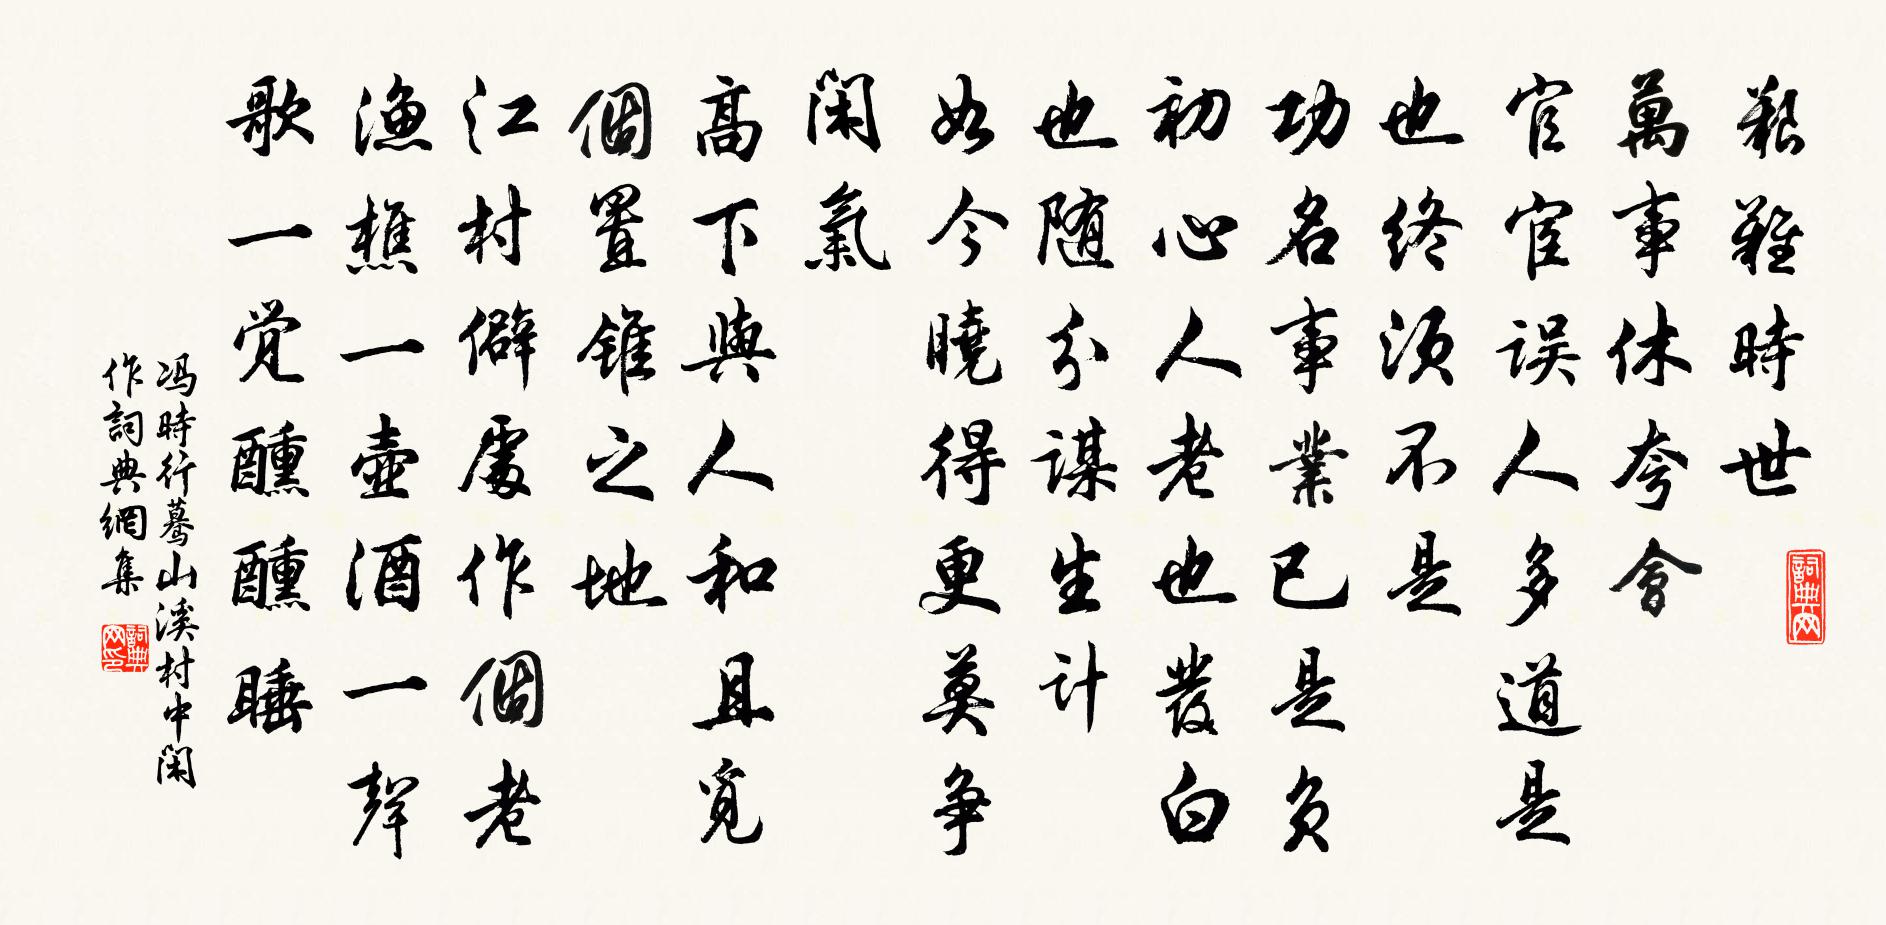 艱難時世
萬事休夸會
官宦误人多道是
也终须不是
功名事業已是负
初心人老也發白
也随分謀生计
如今曉得更莫争
閑氣
高下與人和且覓
個置錐之地
江村僻處作個老
漁樵一壺酒一聲
歌一觉醺醺睡
冯時行蓦山溪村中閑
作詞典網集
詞典网
詞典网印